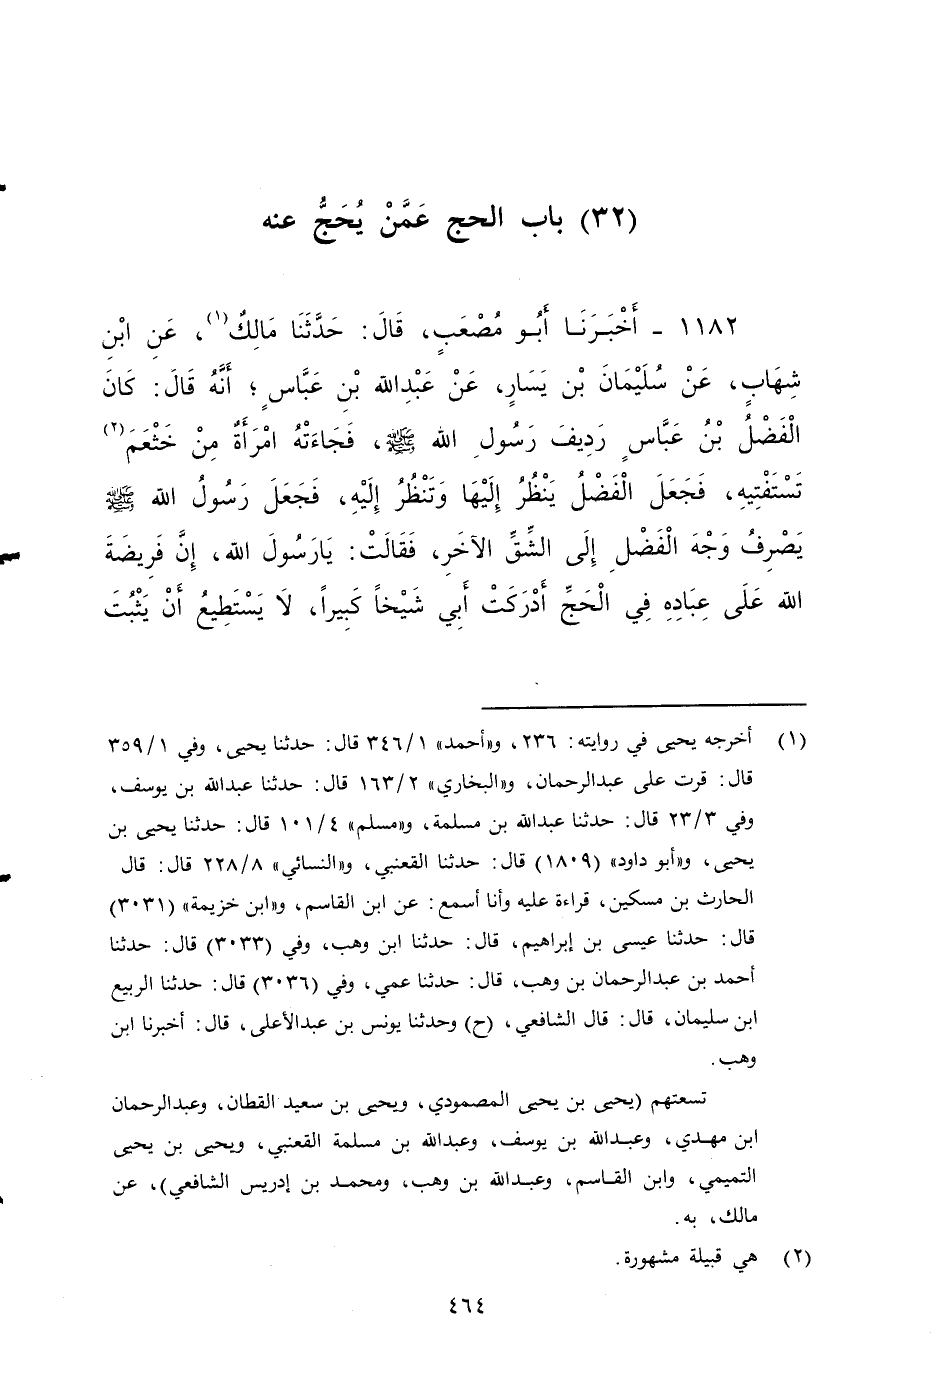 (٣٢) باب الحج عَمَّنْ يُحَجُّ عنه
١١٨٢ ـ أَخْبَرَنَا أَبُو مُصْعَبٍ، قَالَ: حَدَّثَنَا مَالِكٌ(١)، عَنِ ابْنِ
شِهَابٍ، عَنْ سُلَيْمَانَ بْنِ يَسَارٍ، عَنْ عَبْدِالله بْنِ عَبَّاسٍ؛ أَنَّهُ قَالَ: كَانَ
الْفَضْلُ بْنُ عَبَّاسٍ رَدِيفَ رَسُولِ الله ﷺ، فَجَاءَتْهُ امْرَأَةٌ مِنْ خَثْعَمَ(٢)
تَسْتَفْتِيهِ، فَجَعَلَ الْفَضْلُ يَنْظُرُ إِلَيْهَا وَتَنْظُرُ إِلَيْهِ، فَجَعَلَ رَسُولُ الله ﷺ
يَصْرِفُ وَجْهَ الْفَضْلِ إِلَى الشِّقِّ الآخَرِ، فَقَالَتْ: يَارَسُولَ الله، إِنَّ فَرِيضَةَ
الله عَلَى عِبَادِهِ فِي الْحَجِّ أَدْرَكَتْ أَبِي شَيْخاً كَبِيراً، لَا يَسْتَطِيعُ أَنْ يَثْبُتَ
(١) أخرجه يحيى في روايته: ٢٣٦، و«أحمد» ٣٤٦/١ قال: حدثنا يحيى، وفي ٣٥٩/١
قال: قرت على عبدالرحمان، و«البخاري» ١٦٣/٢ قال: حدثنا عبدالله بن يوسف،
وفي ٢٣/٣ قال: حدثنا عبدالله بن مسلمة، و«مسلم» ١٠١/٤ قال: حدثنا يحيى بن
يحيى، و«أبو داود» (١٨٠٩) قال: حدثنا القعنبي، و«النسائي» ٢٢٨/٨ قال: قال
الحارث بن مسكين، قراءة عليه وأنا أسمع: عن ابن القاسم، و«ابن خزيمة» (٣٠٣١)
قال: حدثنا عيسى بن إبراهيم، قال: حدثنا ابن وهب، وفي (٣٠٣٣) قال: حدثنا
أحمد بن عبدالرحمان بن وهب، قال: حدثنا عمي، وفي (٣٠٣٦) قال: حدثنا الربيع
ابن سليمان، قال: قال الشافعي، (ح) وحدثنا يونس بن عبدالأعلى، قال: أخبرنا ابن
وهب.
تسعتهم (يحيى بن يحيى المصمودي، ويحيى بن سعيد القطان، وعبدالرحمان
ابن مهدي، وعبدالله بن يوسف، وعبدالله بن مسلمة القعنبي، ويحيى بن يحيى
التميمي، وابن القاسم، وعبدالله بن وهب، ومحمد بن إدريس الشافعي)، عن
مالك، به.
(٢) هي قبيلة مشهورة.
٤٦٤